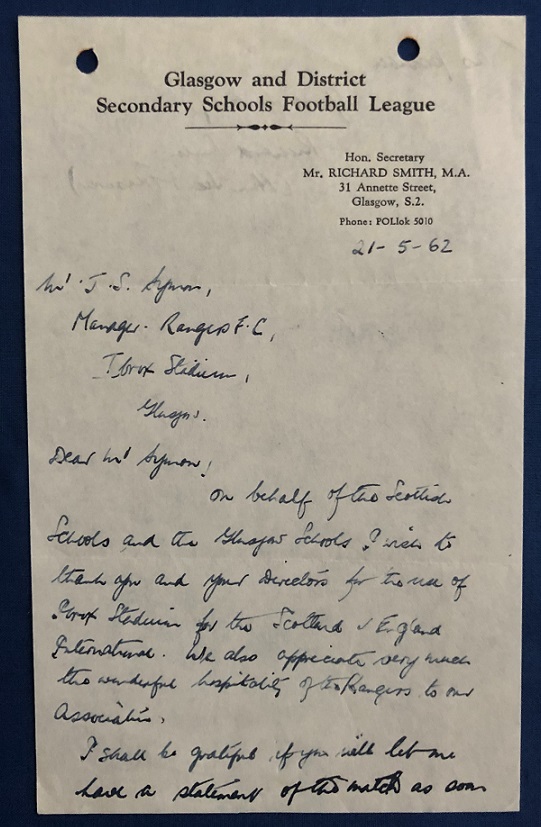 Glasgow and District
Secondary Schools Football League
Hon. Secretary
Mr. RICHARD SMITH, M.A.
31 Annette Street,
Glasgow, S.2.
Phone: POLlok 5010
21-5-62
Mr. J. S. Symon,
Manager. Rangers F.C,
Ibrox Stadium,
Glasgow.
Dear Mr Symon,
On behalf of the Scottish
Schools and the Glasgow Schools I wish to
thank you and your Directors for the use of
Ibrox Stadium for the Scotland v England
International. We also appreciate very much
the wonderful hospitality of the Rangers to our
Association.
I shall be grateful if you will let me
have a statement of the match as soon